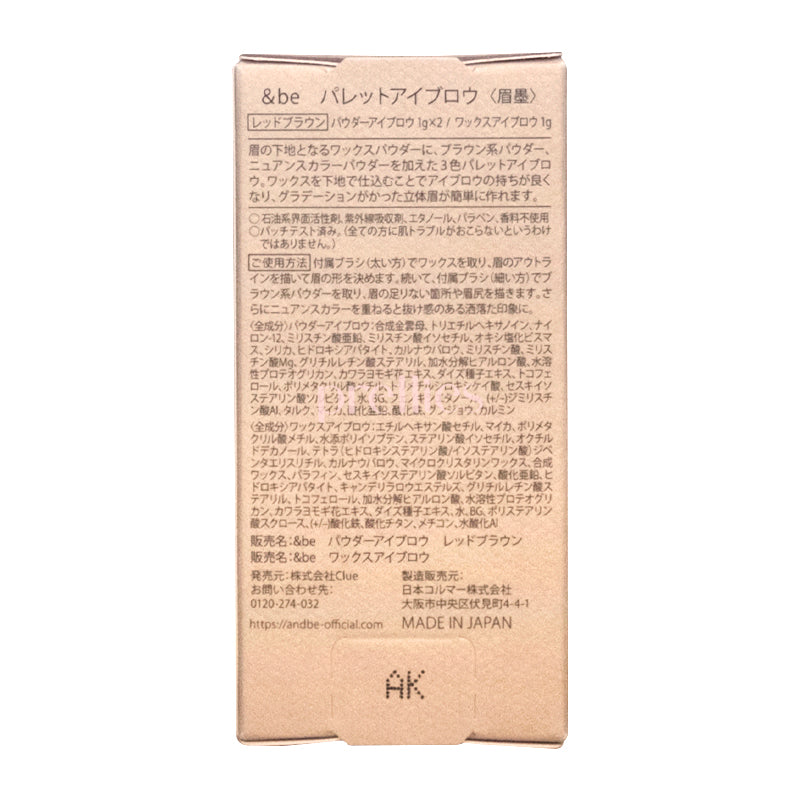 &be パレットアイブロウ〈眉墨〉
レッドブラウン パウダーアイブロウ 1g×2 / ワックスアイブロウ 1g
眉の下地となるワックスパウダーに、ブラウン系パウダー、
ニュアンスカラーパウダーを加えた3色パレットアイブロ
ウ。ワックスを下地で仕込むことでアイブロウの持ちが良く
なり、グラデーションがかった立体眉が簡単に作れます。
○石油系界面活性剤、紫外線吸収剤、エタノール、パラベン、香料不使用
○パッチテスト済み。(全ての方に肌トラブルがおこらないというわけ
ではありません。)
ご使用方法 付属ブラシ(太い方)でワックスを取り、眉のアウトラ
インを描いて眉の形を決めます。続いて、付属ブラシ(細い方)でブ
ラウン系パウダーを取り、眉の足りない箇所や眉尻を描きます。さ
らにニュアンスカラーを重ねると抜け感のある洒落た印象に。
〈全成分〉パウダーアイブロウ:合成金雲母、トリエチルヘキサノイン、ナイ
ロン-12、ミリスチン酸亜鉛、ミリスチン酸イソセチル、オキシ塩化ビスマ
ス、シリカ、ヒドロキシアパタイト、カルナウバロウ、ミリスチン酸、ミリス
チン酸Mg、グリチルレチン酸ステアリル、加水分解ヒアルロン酸、水溶
性プロテオグリカン、カワラヨモギ花エキス、ダイズ種子エキス、トコフェ
ロール、ポリメタクリル酸メチル、
セスキイソ
ステアリン酸ソルビタン、水、BG、
(+/-)ジミリスチ
ン酸Al、タルク、マイカ、酸化亜鉛、酸化鉄、グンジョウ、カルミン
〈全成分〉ワックスアイブロウ:エチルヘキサン酸セチル、マイカ、ポリメタ
クリル酸メチル、水添ポリイソブテン、ステアリン酸イソセチル、オクチル
ドデカノール、テトラ(ヒドロキシステアリン酸/イソステアリン酸)ジペ
ンタエリスリチル、カルナウバロウ、マイクロクリスタリンワックス、合成
ワックス、パラフィン、セスキイソステアリン酸ソルビタン、酸化亜鉛、ヒ
ドロキシアパタイト、キャンデリラロウエステルズ、グリチルレチン酸ス
テアリル、トコフェロール、加水分解ヒアルロン酸、水溶性プロテオグリ
カン、カワラヨモギ花エキス、ダイズ種子エキス、水、BG、ポリステアリン
酸スクロース、(+/-)酸化鉄、酸化チタン、メチコン、水酸化Al
販売名:&be パウダーアイブロウ レッドブラウン
販売名:&be ワックスアイブロウ
発売元:株式会社Clue
お問い合わせ先:
0120-274-032
https://andbe-official.com
製造販売元:
日本コルマー株式会社
大阪市中央区伏見町4-4-1
MADE IN JAPAN
AK